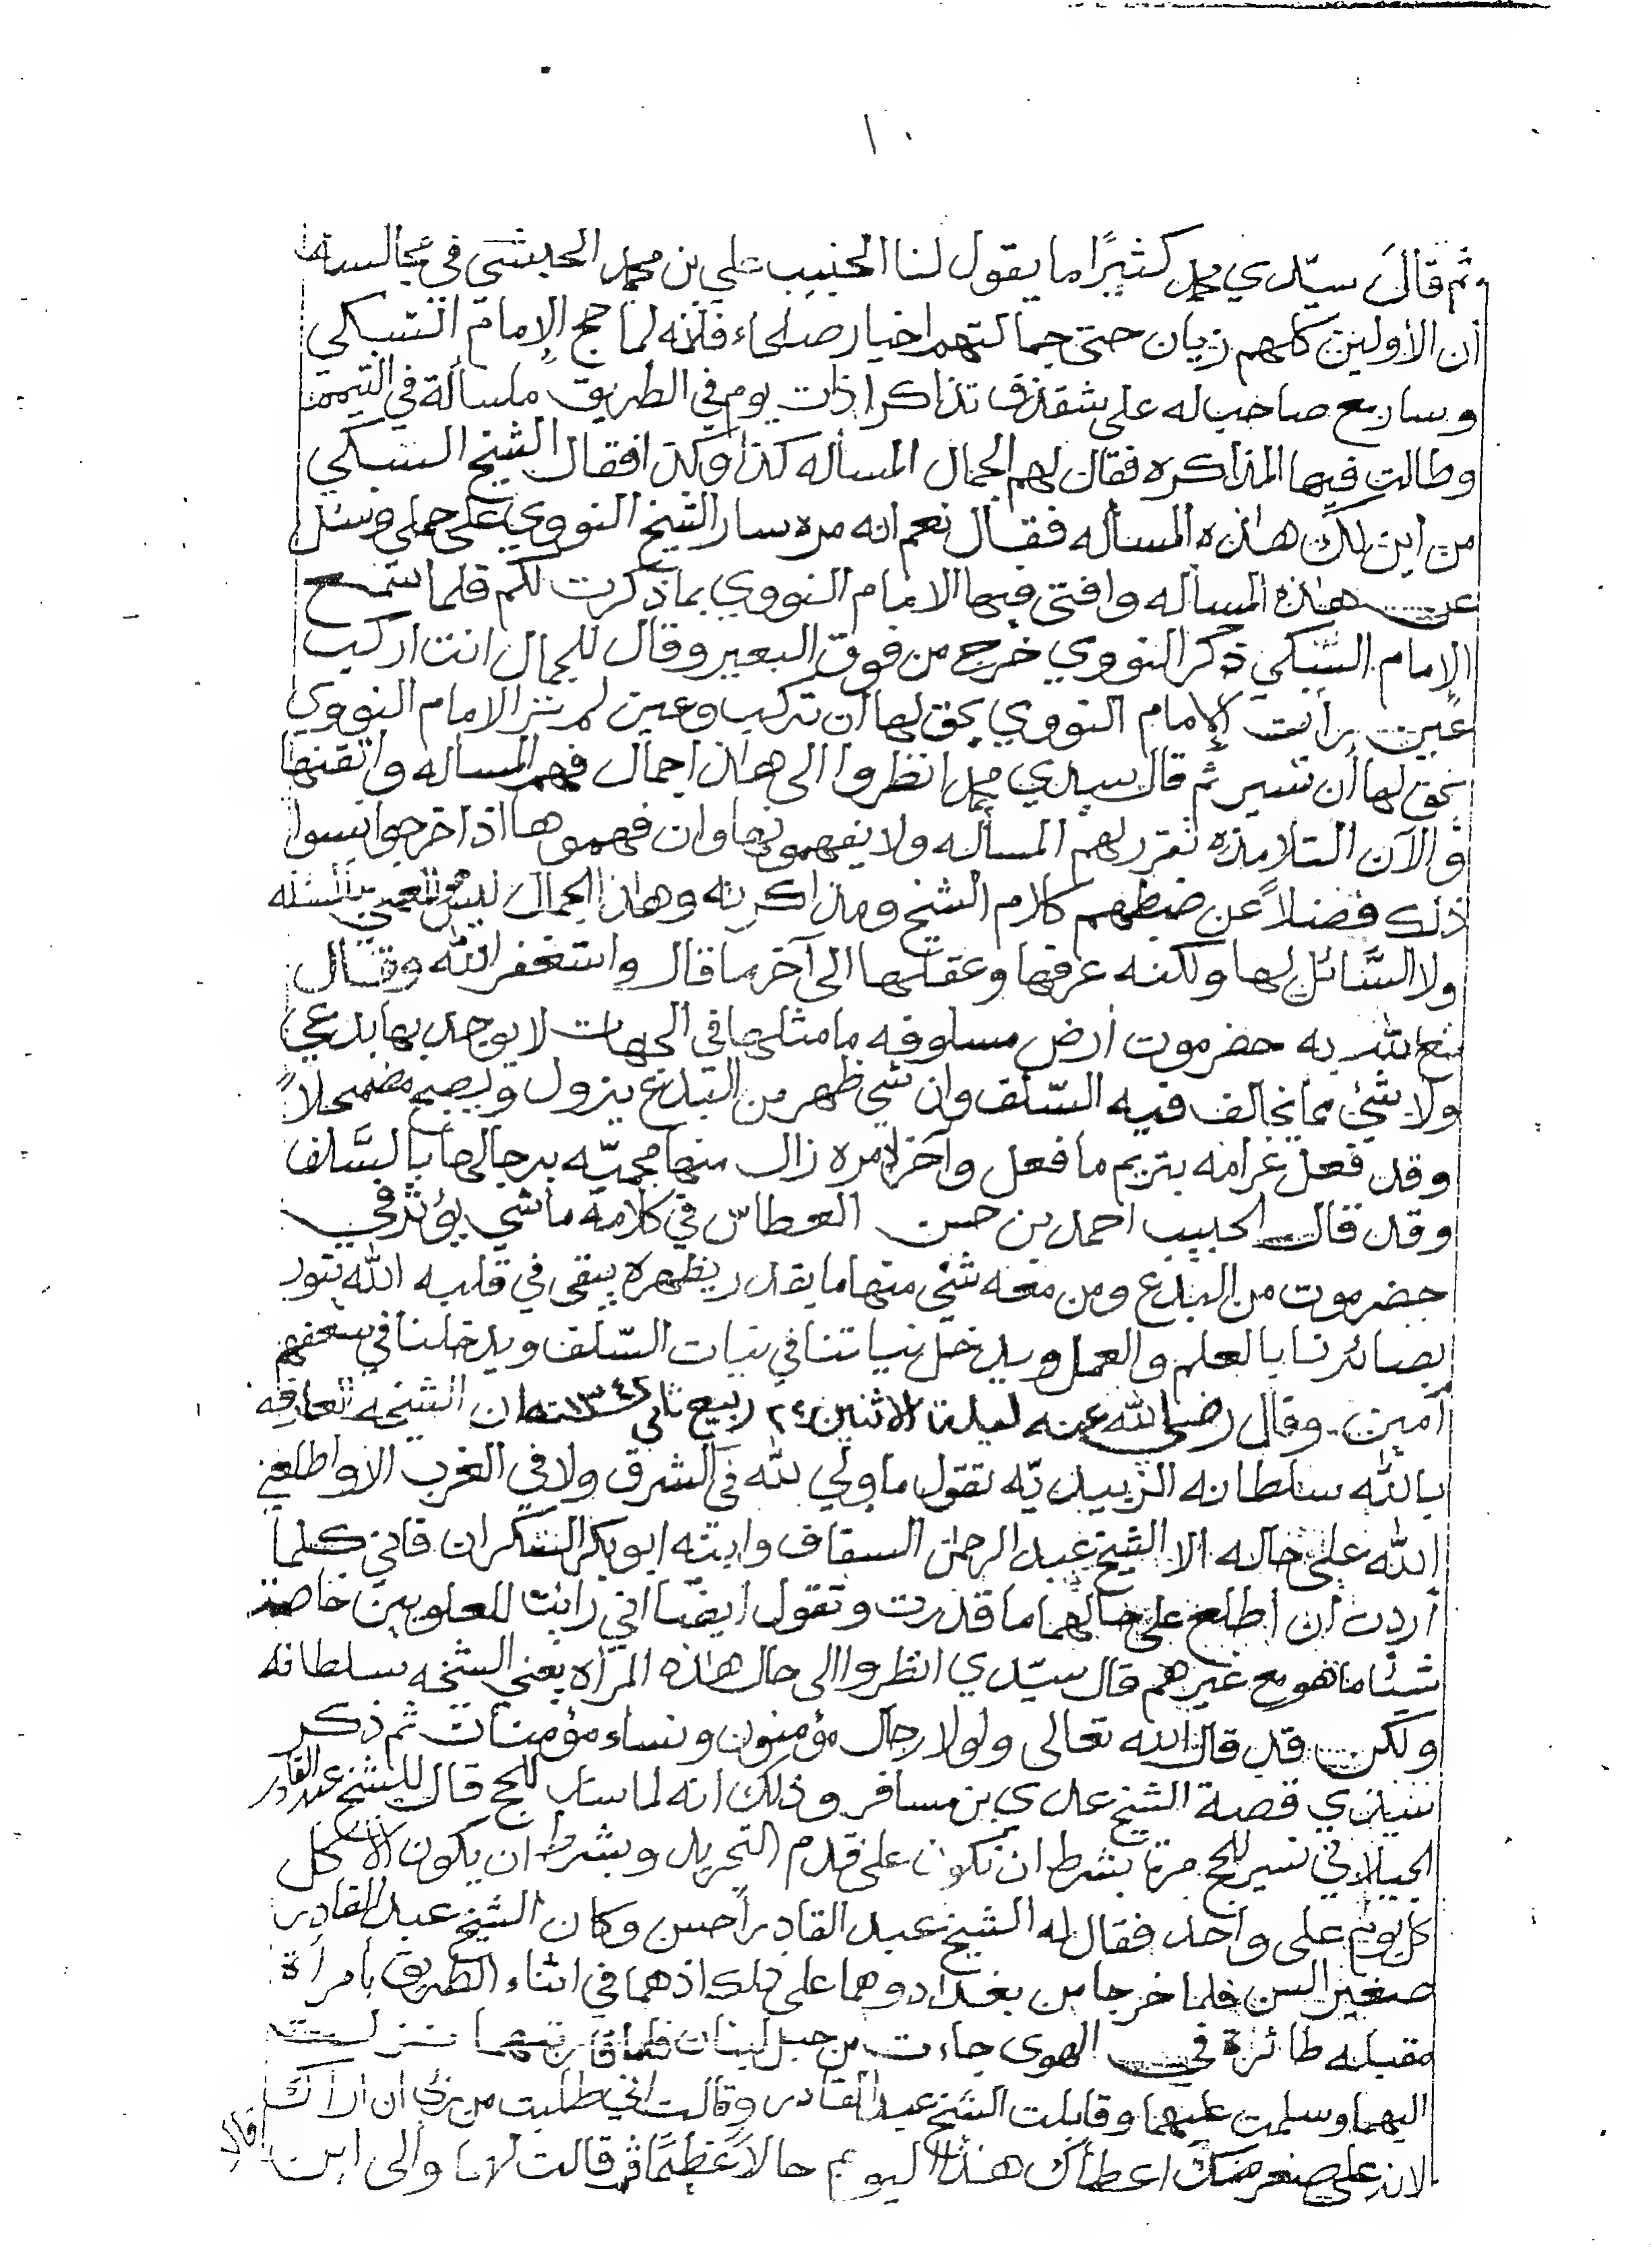 ١٠
ثم قال سيّدي محمد كثيرًا ما يقول لنا الحبيب علي بن محمد الحبشي في مجالسه
أن الأولين كلهم زيان حتى جمالتهم اخيار صلحاء فلانه لما حج الإمام السّبكي
وسار مع صاحب له على شقذف تذاكرا ذات يوم في الطريق مسألة في التيمم
وطالت فيها المذاكره فقال لهم الجمال المسأله كذا وكذا فقال الشيخ السبكي
من اين لك هٰذه المسأله فقال نعم انه مره سار الشيخ النووي على جملي وسئل
عن هٰذه المسأله وافتى فيها الامام النووي بما ذكرت لكم فلما سمع
الإمام السّبكي ذكر النووي خرج من فوق البعير وقال للجمال انت اركب
عين رأت الإمام النووي يحق لها أن تركب وعين لم تر الامام النووي
يحق لها أن تسير ثم قال سيدي محمد انظروا الى هٰذا جمال فهم المسأله واتقنها
والآن التلامذه نقرر لهم المسأله ولا يفهمونها وان فهموها اذا خرجوا نسوا
ذلك فضلاً عن ضبطهم كلام الشيخ ومذاكرته وهٰذا الجمال ليس المعني بالمسئله
ولا السّائل لها ولكنه عرفها وعقلها الى آخر ما قال واستغفر الله وقال
متع الله به حضرموت أرض مسلوفه ما مثلها في الجهات لا يوجد بها بدعي
ولا شئ مما يخالف فيه السّلف وان شي ظهر من البدع يزول ويصبح مضمحلاً
وقد فعل غرامه بتريم ما فعل وآخر الامره زال منها محميّه برجالها بالسّلف
وقد قال الحبيب احمد بن حسن العطاس في كلامه ما شي يؤثر في
حضرموت من البدع ومن معه شئ منها ما يقدر يظهره يبقى في قلبه الله ينور
بصائرنا بالعلم والعمل ويدخل نياتنا في نيات السّلف ويدخلنا في سعفهم
آمين. وقال رضي الله عنه ليلة الاثنين ٢٤ ربيع ثاني سنة ان الشيخه العارفه
بالله سلطانه الزبيديّه تقول ما ولي لله في الشرق ولا في الغرب الا واطلعني
الله على حاله الا الشيخ عبد الرحمٰن السقاف وابنه ابوبكر السكران فاني كلما
أردت أن أطلع على حالهما ما قدرت وتقول ايضًا اني رائت للعلويين خاصة
شئًا ما هو مع غيرهم قال سيّدي انظروا الى حال هٰذه المرأه يعني الشيخه سلطانه
ولكن قد قال الله تعالى ولولا رجال مؤمنون ونساء مؤمنات ثم ذكر
سيدي قصة الشيخ عدي بن مسافر وذلك انه لما سار للحج قال للشيخ عبد القادر
الجيلاني نسير للحج مرة بشرط ان نكون على قدم التجريد وبشرط ان يكون الأكل
كل يوم على واحد فقال له الشيخ عبد القادر أحسن وكان الشيخ عبد القادر
صغير السن فلما خرجا من بغداد وهما على ذلك اذ هما في اثناء الطريق بامرأة
مقبله طائرة في الهوى جاءت من جبل لبنان فلما قاربتهما نزلت
اليهما وسلمت عليهما وقابلت الشيخ عبد القادر وقالت اني طلبت من ربي ان اراك
لانه على صغر سنك اعطاك هذا اليوم حالاً عظيمًا ثم قالت لهما والى اين
قالا